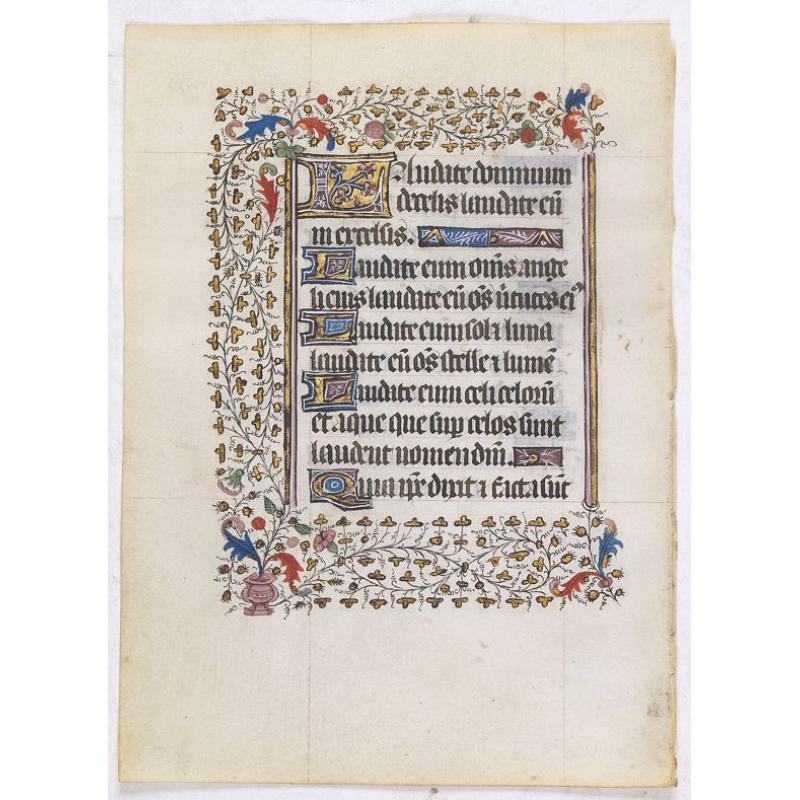 Laudate dominum
de celis laudate eū
in excelsis.
Laudate eum om̄s ange
li eius laudate eū oēs v̄tutes ei⁹
Laudate eum sol ⁊ luna
laudate eū oēs stelle ⁊ lumē
Laudate eum celi celorū
et aque que sup celos sunt
laudent nomen dm̄.
Quia ip̄e dixit ⁊ facta sūt